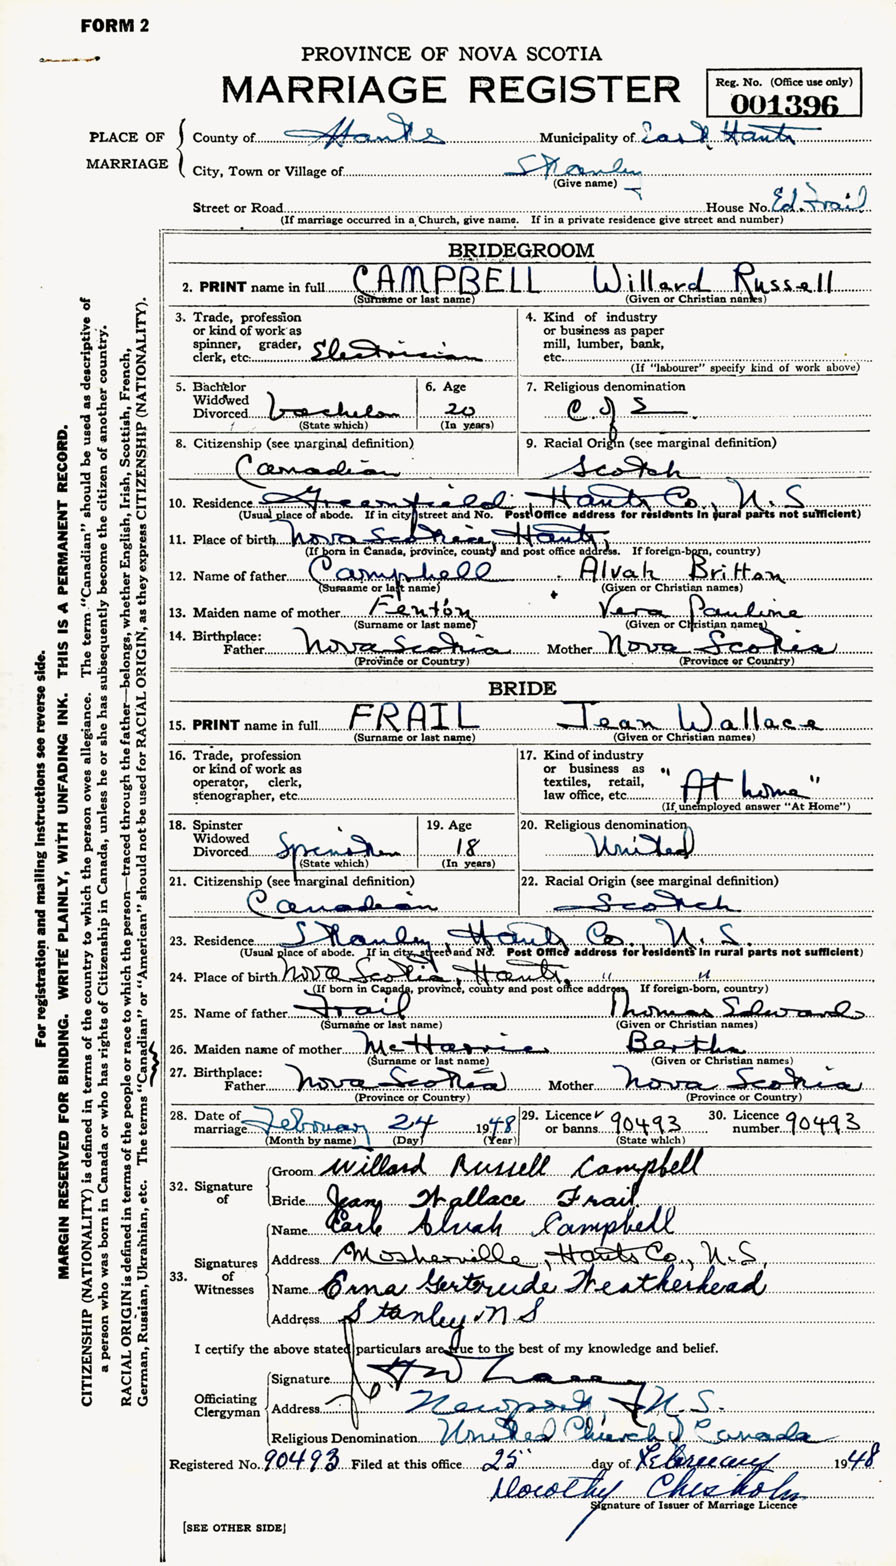 FORM 2
PROVINCE OF NOVA SCOTIA
MARRIAGE REGISTER
Reg. No. (Office use only)
001396
PLACE OF MARRIAGE
County of Hants Municipality of East Hants
City, Town or Village of Stanley
(Give name)
Street or Road House No. Ed. Frail
(If marriage occurred in a Church, give name. If in a private residence give street and number)
BRIDEGROOM
2. PRINT name in full CAMPBELL Willard Russell
(Surname or last name) (Given or Christian names)
3. Trade, profession or kind of work as spinner, grader, clerk, etc. Electrician
4. Kind of industry or business as paper mill, lumber, bank, etc.
(If "labourer" specify kind of work above)
5. Bachelor Widowed Divorced bachelor
(State which)
6. Age 20
(In years)
7. Religious denomination C of E
8. Citizenship (see marginal definition) Canadian
9. Racial Origin (see marginal definition) Scotch
10. Residence Greenfield, Hants Co., N.S
(Usual place of abode. If in city street and No. Post Office address for residents in rural parts not sufficient)
11. Place of birth Nova Scotia, Hants,
(If born in Canada, province, county and post office address. If foreign-born, country)
12. Name of father Campbell Alvah Britton
(Surname or last name) (Given or Christian names)
13. Maiden name of mother Fenton Vera Pauline
(Surname or last name) (Given or Christian names)
14. Birthplace: Father Nova Scotia Mother Nova Scotia
(Province or Country) (Province or Country)
BRIDE
15. PRINT name in full FRAIL Jean Wallace
(Surname or last name) (Given or Christian names)
16. Trade, profession or kind of work as operator, clerk, stenographer, etc.
17. Kind of industry or business as textiles, retail, law office, etc. "At home"
(If unemployed answer "At Home")
18. Spinster Widowed Divorced Spinster
(State which)
19. Age 18
(In years)
20. Religious denomination United
21. Citizenship (see marginal definition) Canadian
22. Racial Origin (see marginal definition) Scotch
23. Residence Stanley, Hants Co. N.S.
(Usual place of abode. If in city, street and No. Post Office address for residents in rural parts not sufficient)
24. Place of birth Nova Scotia, Hants, " "
(If born in Canada, province, county and post office address. If foreign-born, country)
25. Name of father Frail Thomas Edward
(Surname or last name) (Given or Christian names)
26. Maiden name of mother Bertha
(Surname or last name) (Given or Christian names)
27. Birthplace: Father Nova Scotia Mother Nova Scotia
(Province or Country) (Province or Country)
28. Date of marriage February 24 1948
(Month by name) (Day) (Year)
29. Licence or banns 90493
(State which)
30. Licence number 90493
32. Signature of
Groom Willard Russell Campbell
Bride Jean Wallace Frail
33. Signatures of Witnesses
Name Alvah Campbell
Address Mosherville, Hants Co., N.S.
Name Erna Gertrude Weatherhead
Address Stanley N S
I certify the above stated particulars are true to the best of my knowledge and belief.
Officiating Clergyman
Signature
Address Newport N.S.
Religious Denomination United Church of Canada
Registered No. 90493 Filed at this office 25 day of February 1948
Dorothy Chisholm
Signature of Issuer of Marriage Licence
[SEE OTHER SIDE]
For registration and mailing instructions see reverse side.
MARGIN RESERVED FOR BINDING. WRITE PLAINLY, WITH UNFADING INK. THIS IS A PERMANENT RECORD.
CITIZENSHIP (NATIONALITY) is defined in terms of the country to which the person owes allegiance. The term "Canadian" should be used as descriptive of
a person who was born in Canada or who has rights of Citizenship in Canada, unless he or she has subsequently become the citizen of another country.
RACIAL ORIGIN is defined in terms of the people or race to which the person—traced through the father—belongs, whether English, Irish, Scottish, French,
German, Russian, Ukrainian, etc. The terms "Canadian" or "American" should not be used for RACIAL ORIGIN, as they express CITIZENSHIP (NATIONALITY).